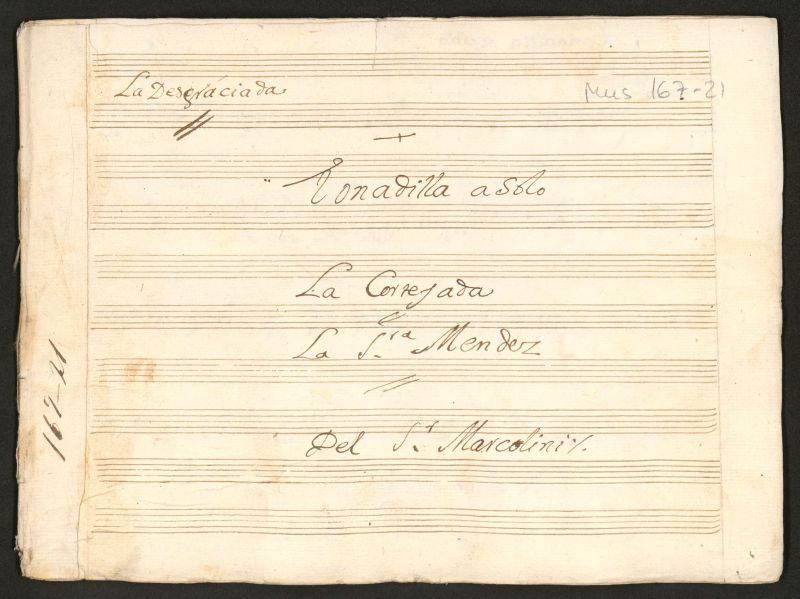 La Desgraciada
Mus 167-21
Tonadilla a Solo
La Cortejada
La S.ra Mendez
Del S.r Marcolini
167-21